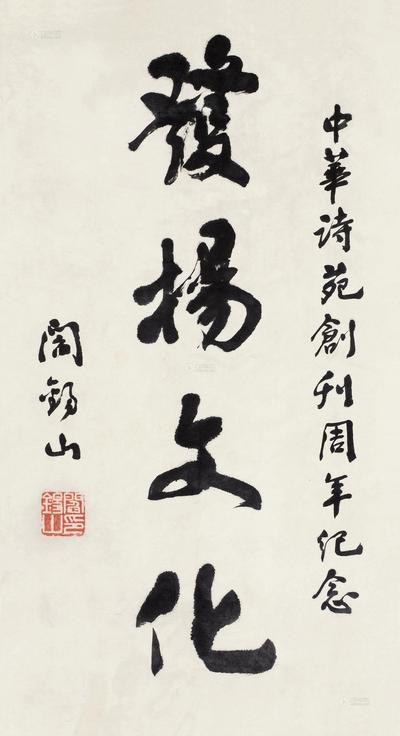 中華詩苑創刊周年纪念
發揚文化
閻錫山
閻錫山印